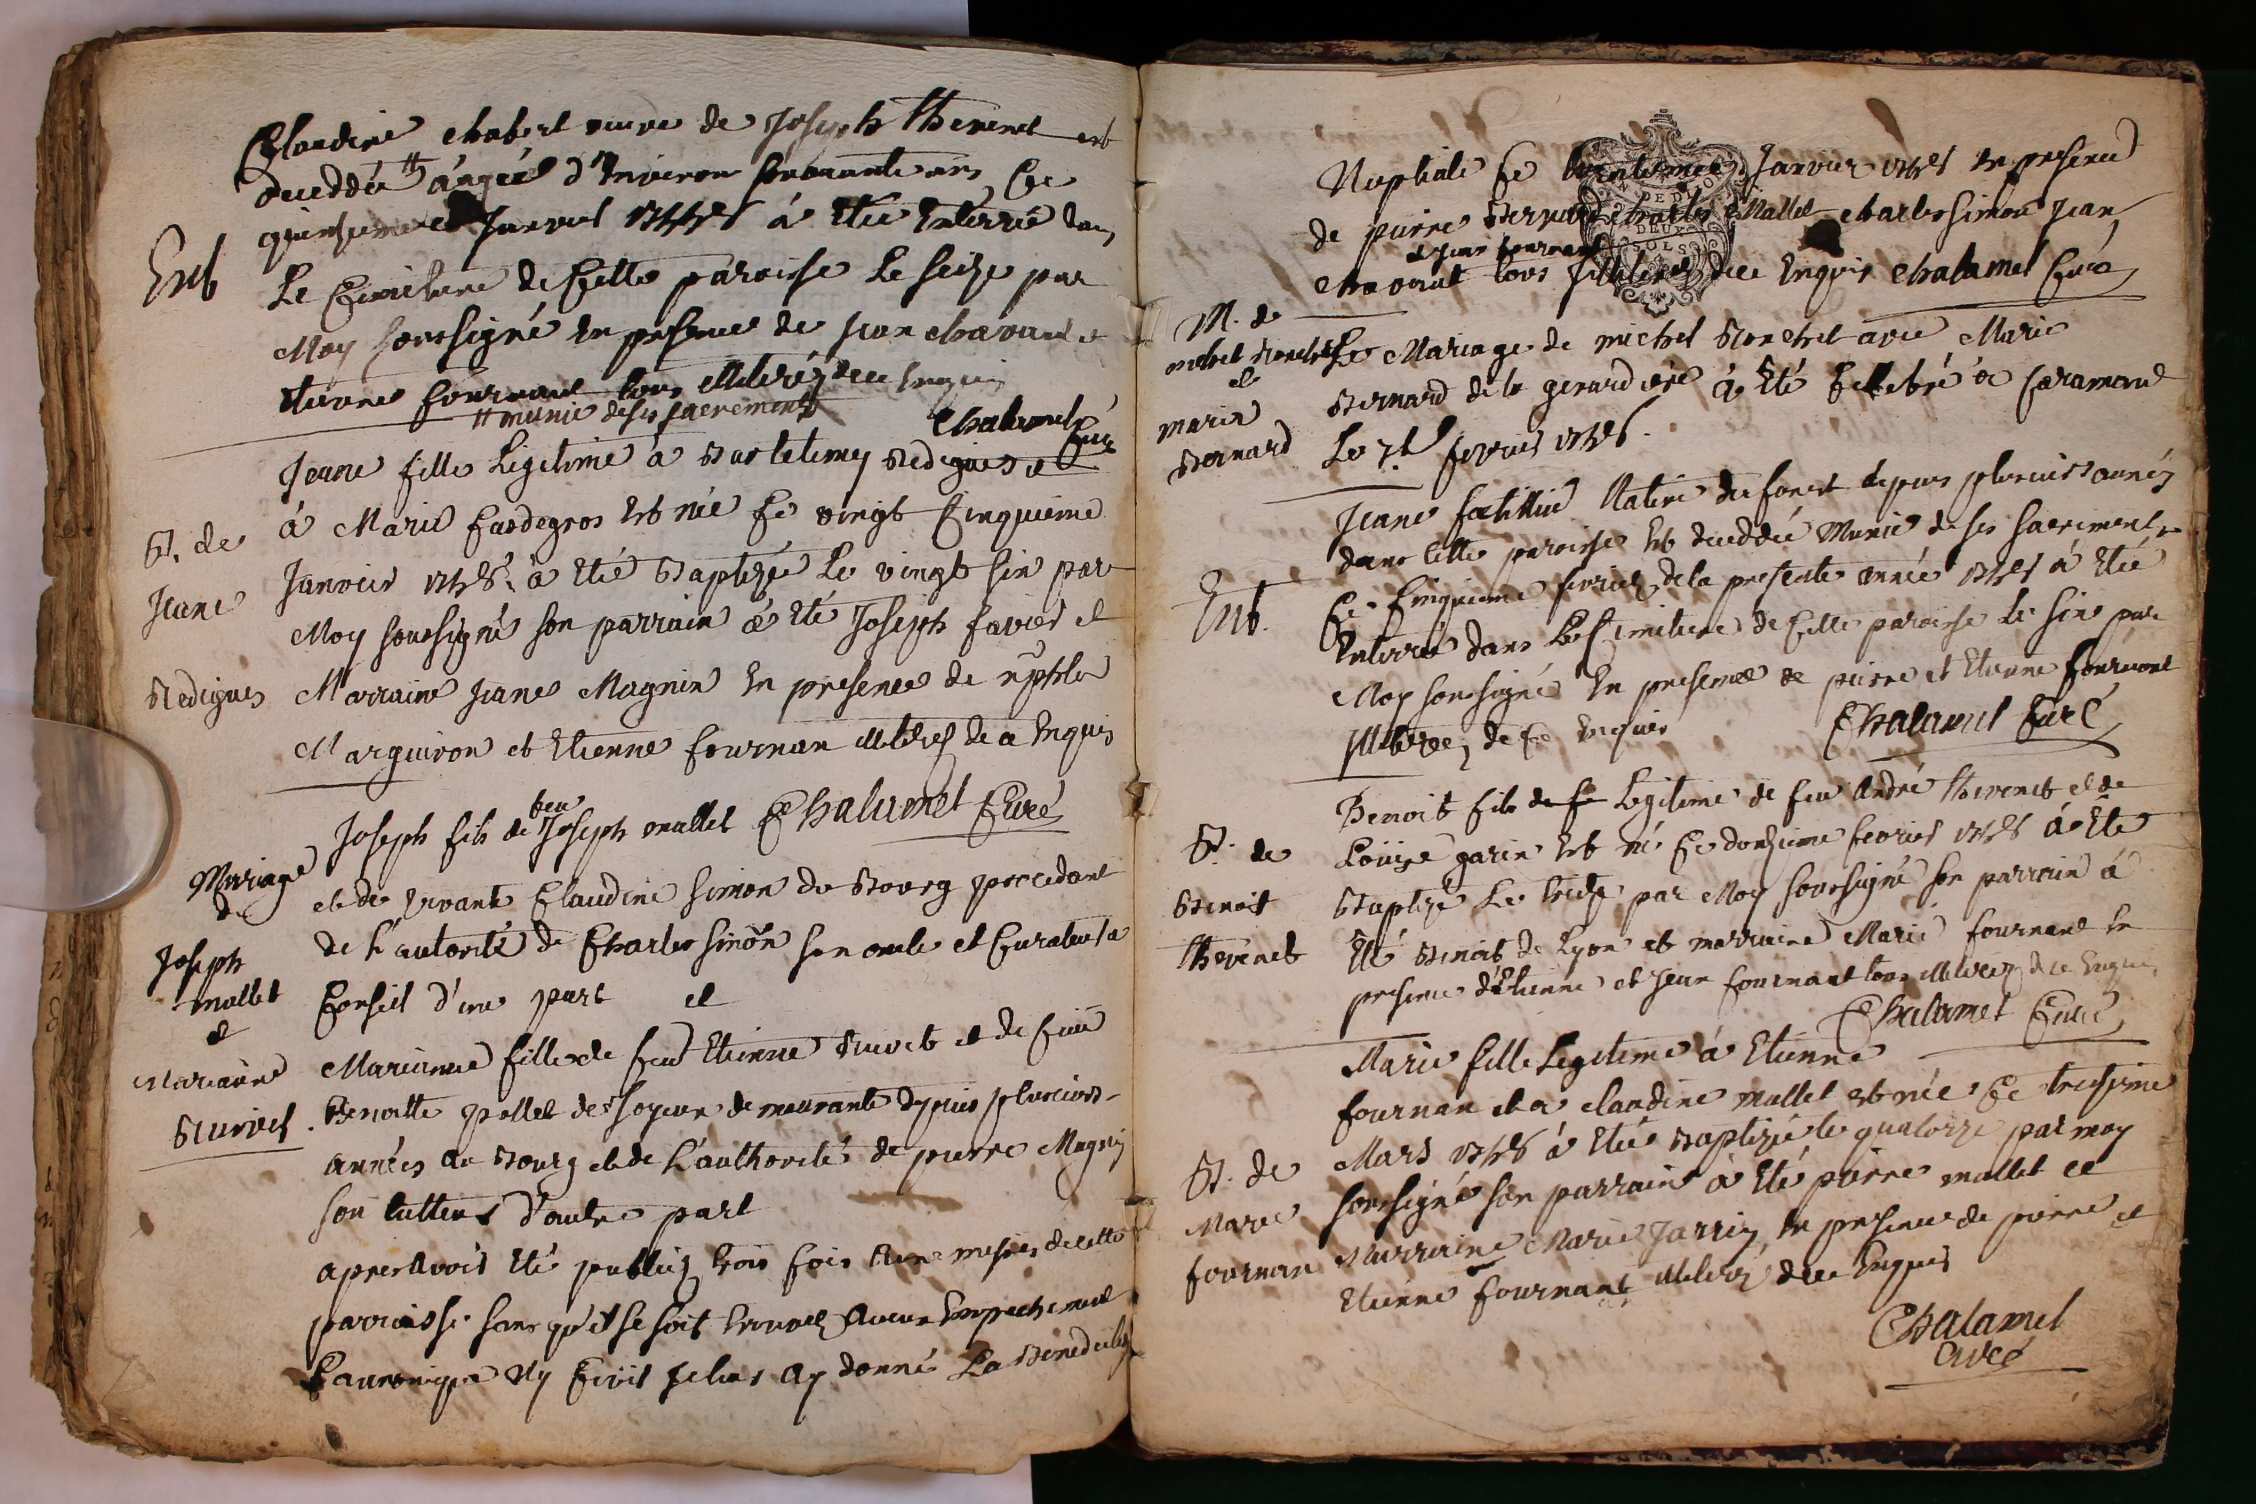 Claudine chabert veuve de Joseph thevenet est
deceddée # ângée d'Environ soixante ans Ce
quinzieme Janvier à Eté Enterrée dans
Ent
Le Cimetiere de Cette paroisse Le seize par
Moy soussigné En presence de jean chavant et
Etienne fournant tous illiterez de ce Enquis
# munie de ses sacrements
Chalamel Curé
Jeane fille Legitime à Bartelemy Bedigues et
à Marie Cardegros Est née Ce vingt Cinquieme
B. de
Jeane
Bedigues
Janvier à Eté Baptizée Le vingt six par
Moy soussigné son parrain à Eté Joseph favier et
Marraine Jeane Magnin En presence de
Marguiron et Etienne fournan illiterez de ce Enquis
Chalamel Curé
Mariage
de
Joseph
mallet
et
Marianne
Joseph fils de feu Joseph mallet
et de vivante Claudine simon du Bourg procedant
de L'autorité de Charles simon son oncle et Curateur
Conseil d'une part et
Marianne fille de feu Etienne et de feue
Benoitte pollet de demeurante depuis plusieurs
années au Bourg et de L'authorité de pierre Magnin
son tutteur d'autre part
apres avoir Eté publiez trois fois de cette
parroisse sans qu'il se soit trouvez Aucun Empechement
Canonique Ny Civil je leur ay donné La Benediction
Nuptiale Ce Janvier En presence
de pierre Bernard charles Mallet charles simon Jean
et jean fournant
chavant tous illiterez de ce Enquis Chalamel Curé
M. de
michel
et
marie
Bernard
Le Mariage de michel avec Marie
Bernard de la gerardiere à Eté Celebré à
Le fevrier
Jeane Native du forest depuis plusieurs années
dans Cette paroisse Est deceddée Munie de ses sacrements
Ent.
Ce Cinquieme fevrier de la presente année à Eté
Enterrée dans Le Cimetiere de Cette paroisse Le six par
Moy soussigné En presence de pierre et Etienne fournant
illiterez de Ce Enquis Chalamel Curé
B. de
Benoit
thevenet
Benoit fils Legitime de feu André thevenet et de
Loüise garin Est né Ce douzieme fevrier à Eté
Baptizé Le treize par Moy soussigné son parrain à
Eté Benoit de Lyon et marraine Marie fournant En
presence d'Etienne et Jean fournant tous illiterez de ce Enquis
Chalamel Curé
Marie fille Legitime à Etienne
fournan et à claudine mallet est née Ce treizieme
B. de
Marie
fournan
Mars à Eté Baptizée le quatorze par moy
soussigné son parrain à Eté pierre mallet et
Marraine Marie Jarrin En presence de pierre et
Etienne fournant illiterez de ce Enquis
Chalamel
Curé